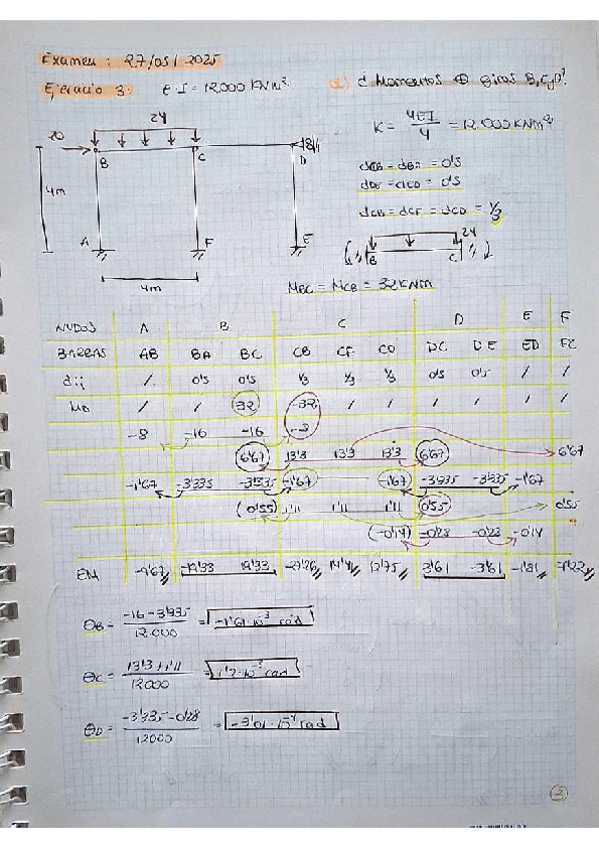 Examen: 27/05/2025
Ejercicio 3: E·I = 12000 KNm² a) ¿ Momentos ⊕ giros B,C,D?
K = 4EI/4 = 12.000KNm²
24
20
B C D
4m
A F E
4m
dCB = dCF = dCD = 1/3
24
B C
MBC = MCB = 32KNm
NUDOS A B C D E F
BARRAS AB BA BC CB CF CD DC DE ED FC
dij / 0'5 0'5 1/3 1/3 1/3 0'5 0'5 / /
M0 / / 32 -32 / / / / / /
-8 -16 -16 -8
6'67 13'3 13'3 13'3 6'67 6'67
-1'67 -3'335 -3'335 -1'67 -1'67 -3'335 -3'335 -1'67
(0'55) 1'11 1'11 1'11 0'55 0'55
(-0'14) -0'28 -0'28 -0'14
EM -9'67 -19'33 19'33 -27'26 14'41 12'75 3'61 -3'61 -1'81 7'22
θB = -16-3'335/12.000 = -1'61·10⁻³ rad
θC = 13'3+1'11/12000 = 1'2·10⁻³ rad
θD = -3'335-0'28/12000 = -3'01·10⁻⁴ rad
3